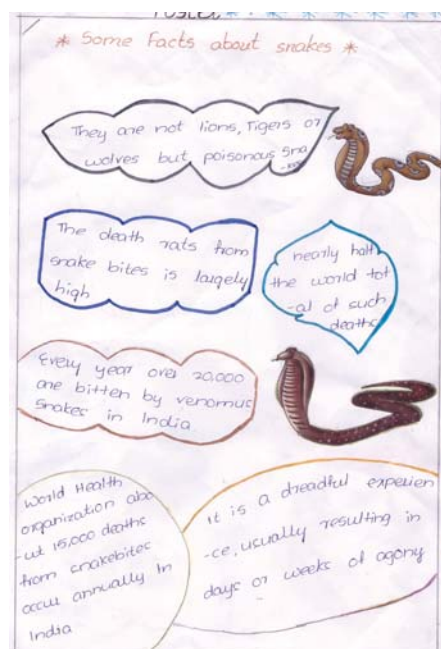 * Some Facts about snakes *
They are not lions, Tigers or
wolves but poisonous sna
-kes
The death rats from
snake bites is largely
high
nearly half
the world tot
-al of such
deaths
Every year over 20,000
are bitten by venomus
snakes in India
World Health
organization abo
-ut 15,000 deaths
from snakebites
occur annually In
India
It is a dreadful experien
-ce, usually resulting in
days or weeks of agony